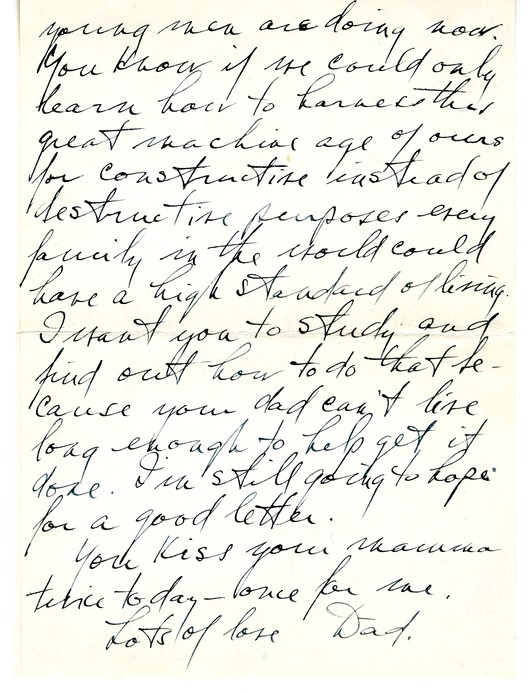 young men are doing now.
You know if we could only
learn how to harness this
great machine age of ours
for constructive instead of
destructive purposes every
family in the world could
have a high standard of living.
I want you to study and
find out how to do that be-
cause your dad can't live
long enough to help get it
done. I'm still going to hope
for a good letter.
You Kiss your mamma
twice today - once for me.
Lots of love Dad.